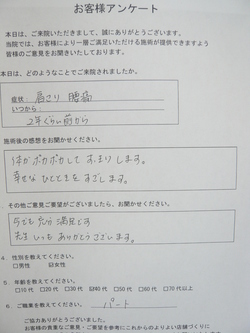 お客様アンケート
本日は、ご来院いただきまして、誠にありがとうございます。
当院では、お客様により一層ご満足いただける施術が提供できますよう
皆様のご意見をお聞きいたしております。
本日は、どのようなことでご来院されましたか。
症状 肩こり 腰痛
いつから
2年ぐらい前から
施術後の感想をお聞かせください。
体がポカポカして おります。
幸せな ひとときを すごします。
その他ご意見ご要望がございましたら、お聞かせください。
今でも 充分 満足です
先生 いつも ありがとうございます。
4. 性別を教えてください。
□男性 ☑女性
5. 年齢を教えてください。
□10代 □20代 □30代 ☑40代 □50代 □60代 □70代以上
6. ご職業を教えてください。 パート
ご協力ありがとうございました。
お客様の貴重なご意見・ご要望を参考にこれからのよりよい店舗づくりに